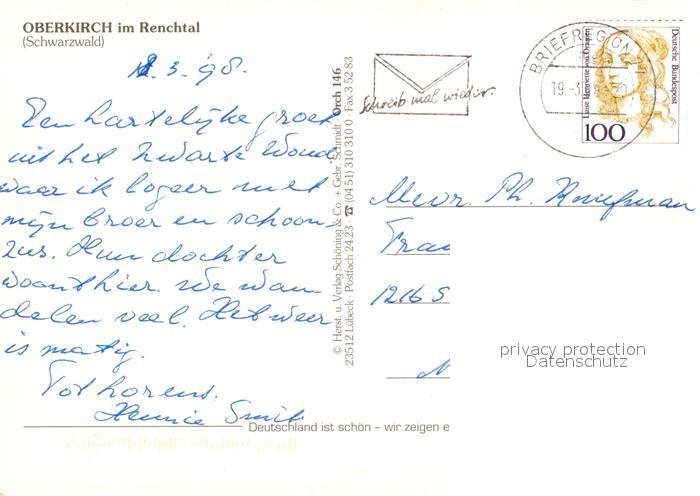 OBERKIRCH im Renchtal
(Schwarzwald)
.3.98.
Een hartelijke groet
uit het zwarte Woud
waar ik logeer met
mijn broer en schoon-
zus. Hun dochter
woont hier. We wan-
delen veel. Het weer
is matig.
Tot horens.
Smit
Deutschland ist schön – wir zeigen e
© Herst. u. Verlag Schöning & Co. + Gebr. Schmidt · Orch 146
23512 Lübeck · Postfach 24 23 ☎ (04 51) 310 310 0 Fax 3 52 83
Schreib mal wieder.
BRIEFREGION
19.-3.
Luise Henriette von Oranien
Deutsche Bundespost
100
Mevr. Ph.
Fran
1216 S
privacy protection
Datenschutz